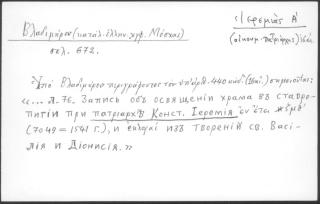 Βλαδιμήρου (κατάλ. ἑλλην. χφφ. Μόσχας)
σελ. 672.
Ἱερεμίας Α΄
(οἰκουμ. πατριάρχης)
Ὑπὸ Βλαδιμήρου περιγράφοντος τὸν ὑπ' ἀριθ. 440 κώδ. σημειοῦται:
«... Л. 76. Запись объ освященіи храма въ ставро-
пигіи при патріархѣ Конст. Іереміи ἐν ἔτει ͵ζμθ΄
(7049 = 1541 г.), и изъ твореній св. Васи-
лія и Діонисія.»